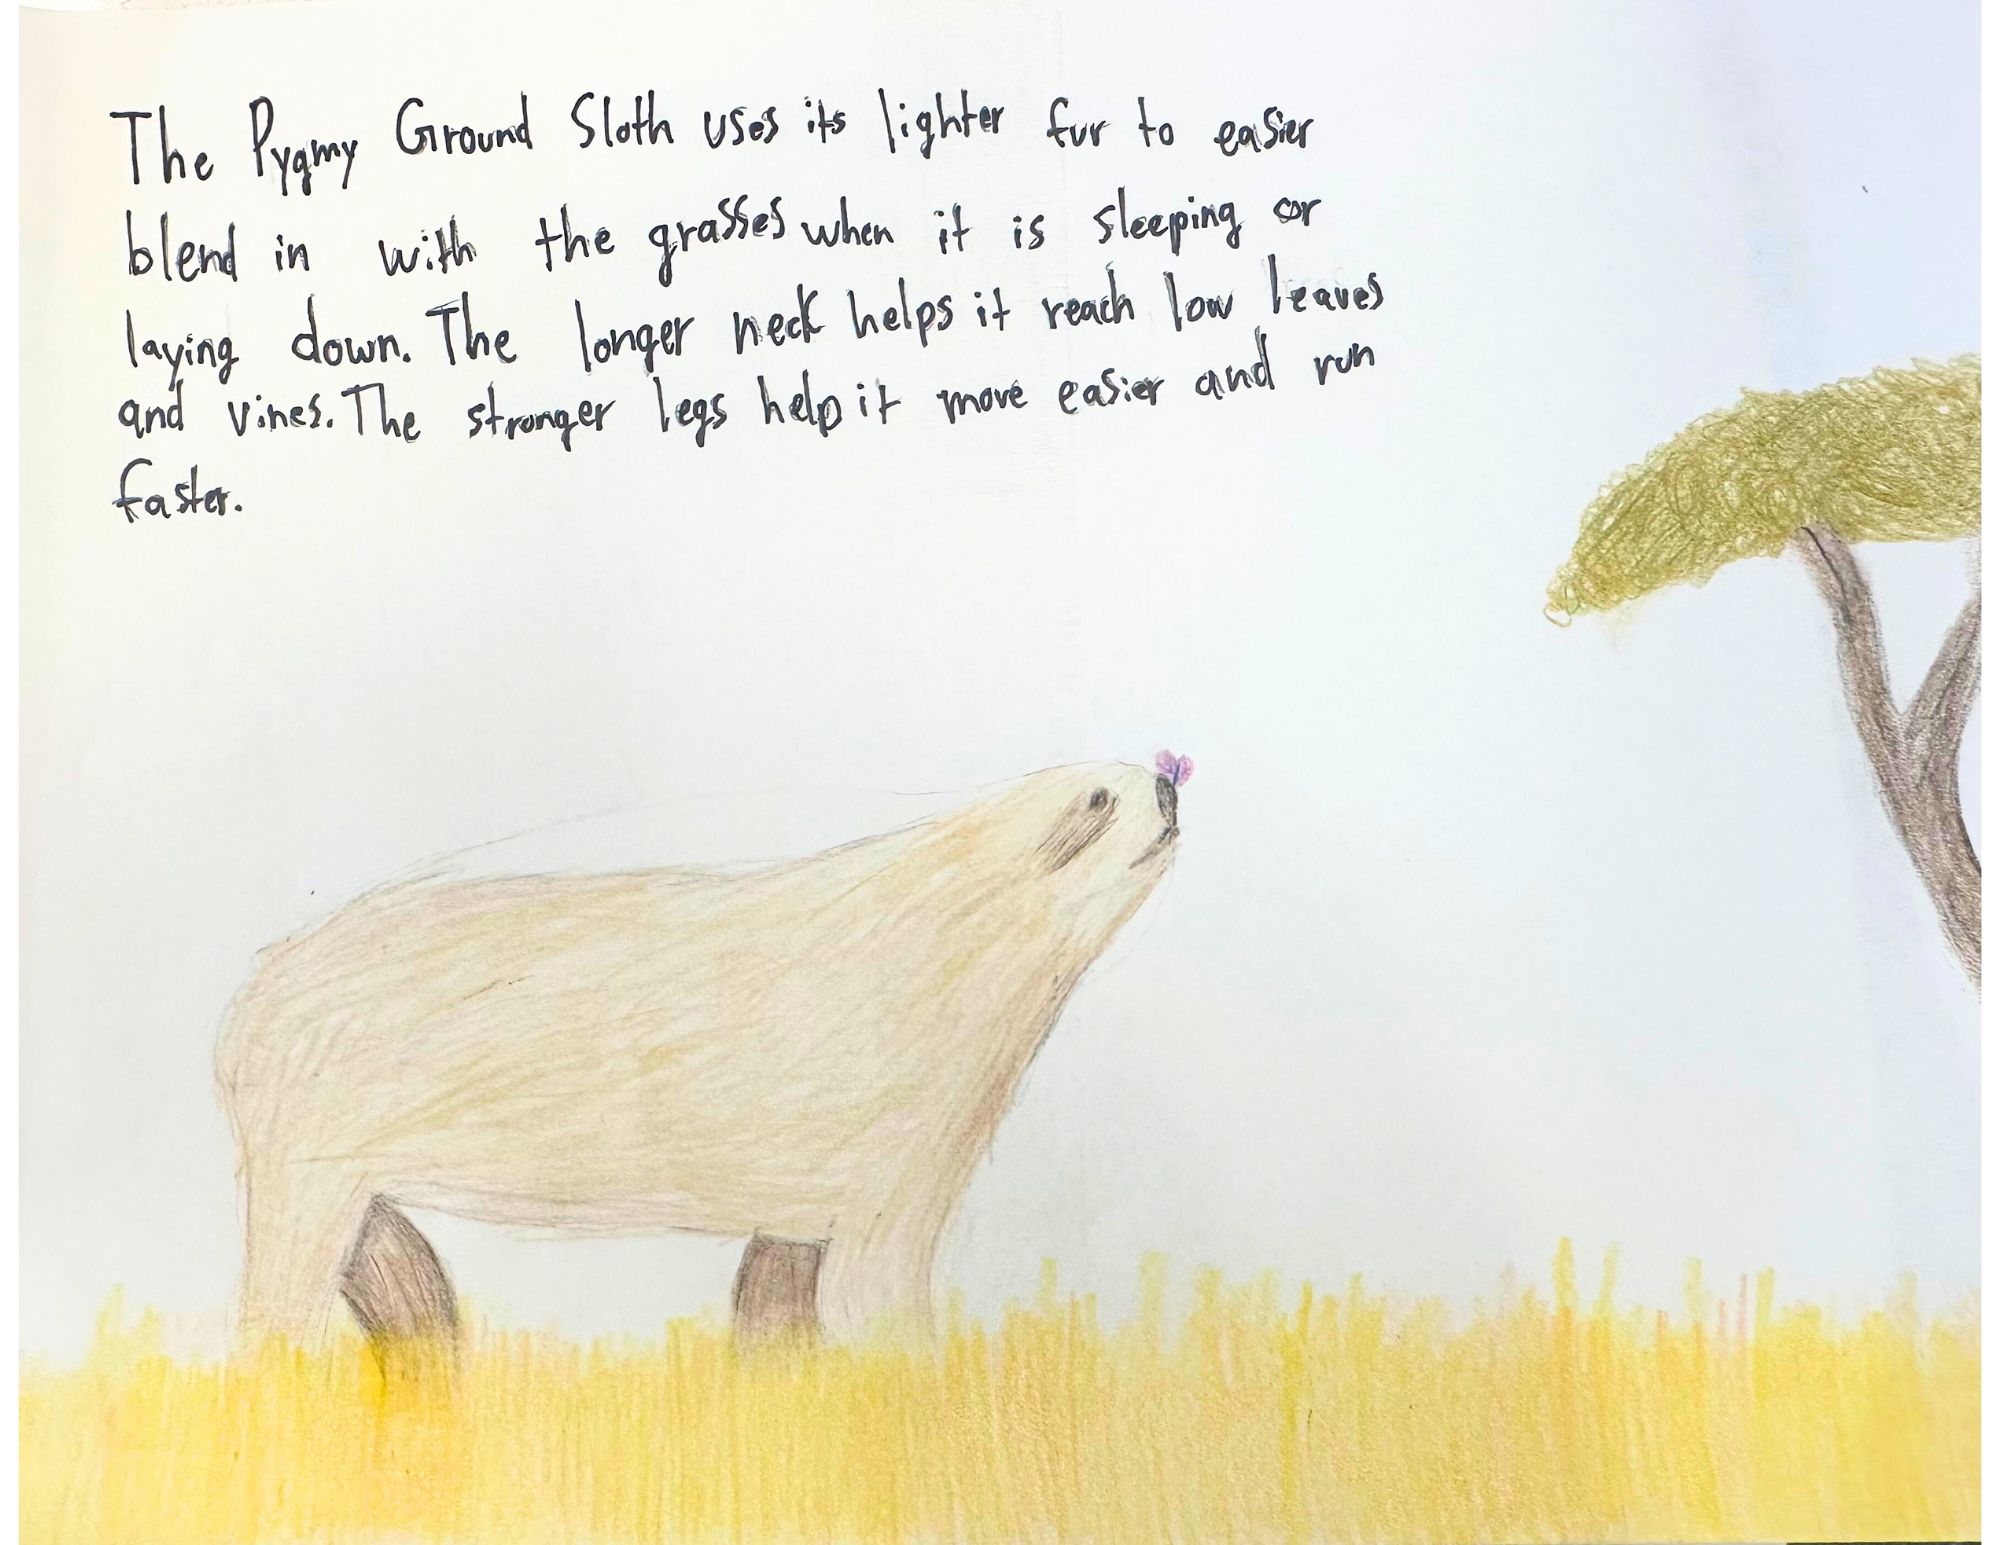 The Pygmy Ground Sloth uses its lighter fur to easier
blend in with the grasses when it is sleeping or
laying down. The longer neck helps it reach low leaves
and vines. The stronger legs help it move easier and run
faster.